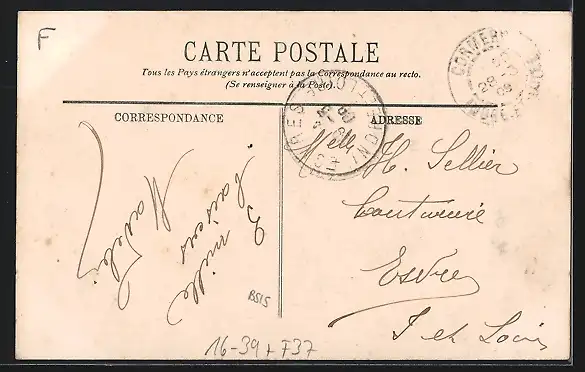 F
CARTE POSTALE
Tous les Pays étrangers n'acceptent pas la Correspondance au recto.
(Se renseigner à la Poste).
CORRESPONDANCE
3 mille
baisers
ADRESSE
Melle H. Sellier
Couturière
Esvres
I et Loire
BS15
16-39+F37